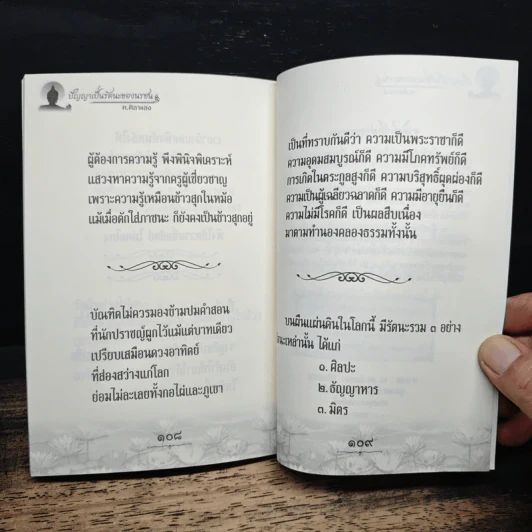 ปัญญาเป็นรัตนะของนรชน
ศ.ศิลาทอง
ผู้ต้องการความรู้ พึงพินิจพิเคราะห์
แสวงหาความรู้จากครูผู้เชี่ยวชาญ
เพราะความรู้เหมือนข้าวสุกในหม้อ
แม้เมื่อตักใส่ภาชนะ ก็ยังคงเป็นข้าวสุกอยู่
บัณฑิตไม่ควรมองข้ามปมคำสอน
ที่นักปราชญ์ผูกไว้แม้แต่บาทเดียว
เปรียบเสมือนดวงอาทิตย์
ที่ส่องสว่างแก่โลก
ย่อมไม่ละเลยทั้งกอไผ่และภูเขา
๑๐๘
เป็นที่ทราบกันดีว่า ความเป็นพระราชาก็ดี
ความอุดมสมบูรณ์ก็ดี ความมีโภคทรัพย์ก็ดี
การเกิดในตระกูลสูงก็ดี ความบริสุทธิ์ผุดผ่องก็ดี
ความเป็นผู้เฉลียวฉลาดก็ดี ความมีอายุยืนก็ดี
ความไม่มีโรคก็ดี เป็นผลสืบเนื่อง
มาตามทำนองคลองธรรมทั้งนั้น
บนผืนแผ่นดินในโลกนี้ มีรัตนะรวม ๓ อย่าง
นะเหล่านั้น ได้แก่
๑. ศิลปะ
๒. ธัญญาหาร
๓. มิตร
๑๐๙